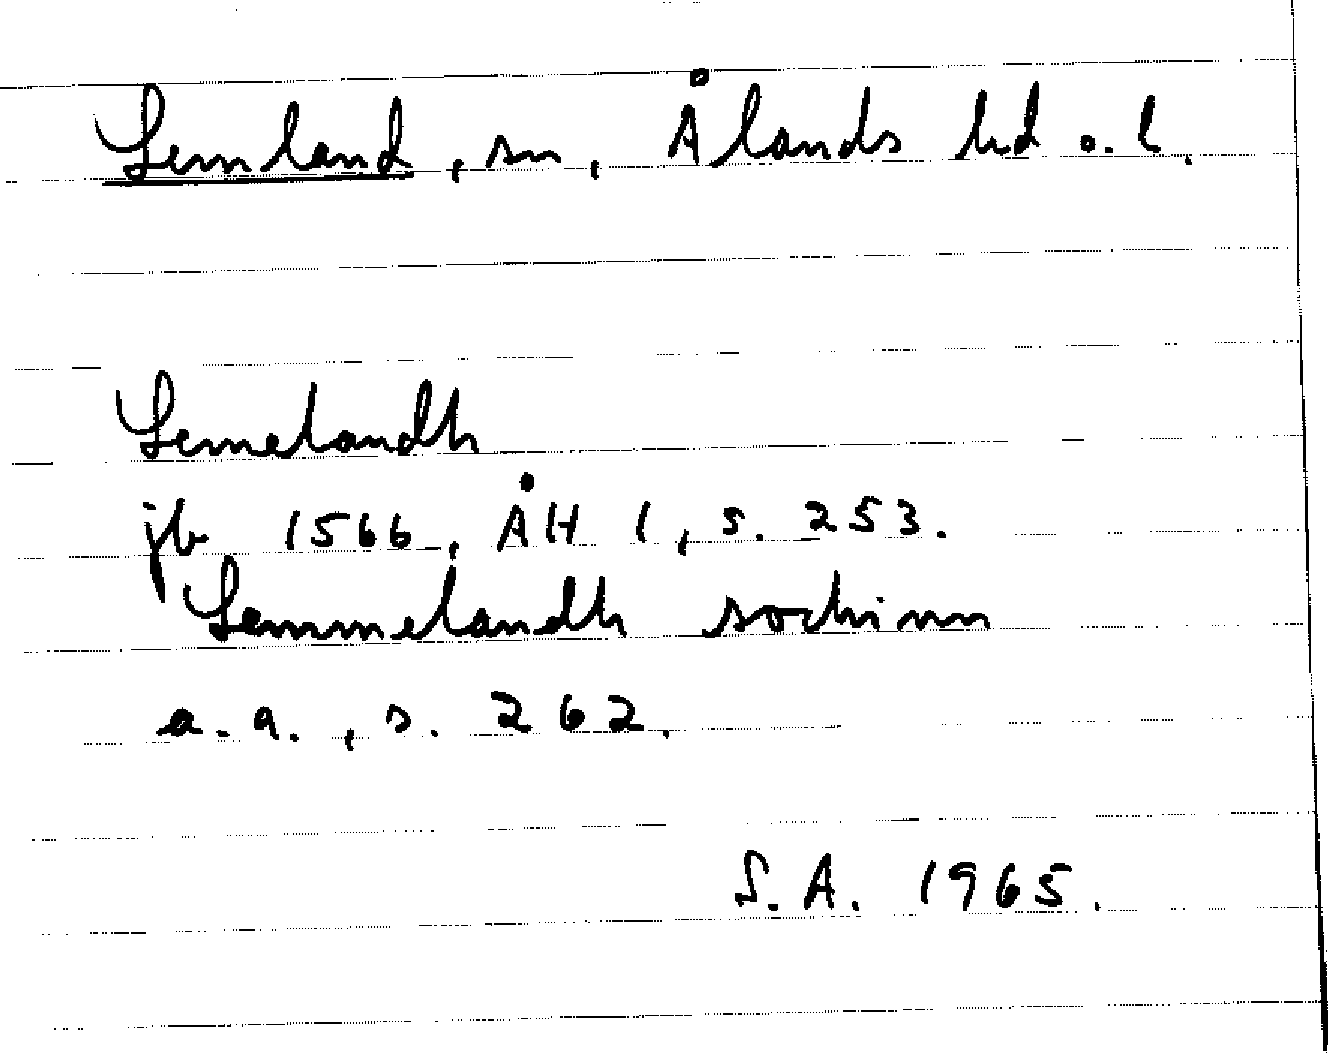 Lemland, sn, Ålands hd o. l.
Lemelandh
jb 1566, ÅH 1, s. 253.
Lemmelandh sochinn
a.a., s. 262.
S.A. 1965.